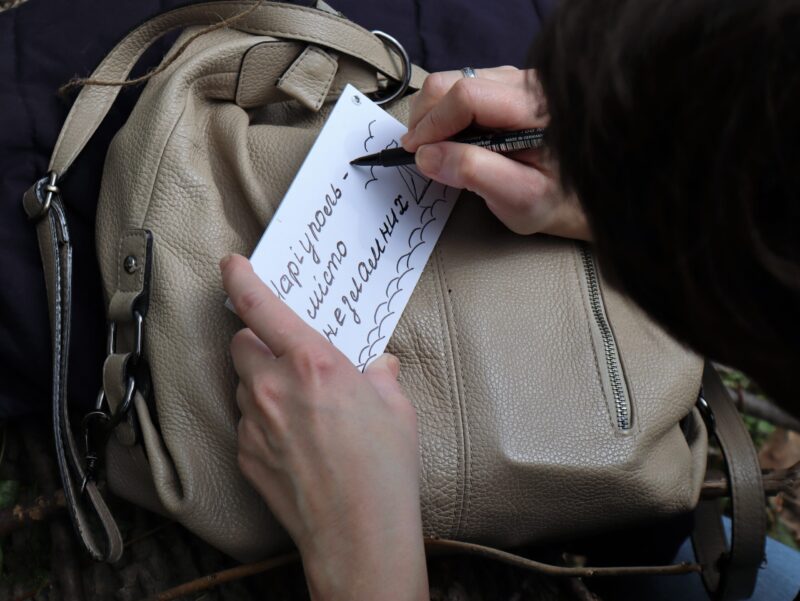 Маріуполь-
місто
незламних
marker MADE IN GERMANY